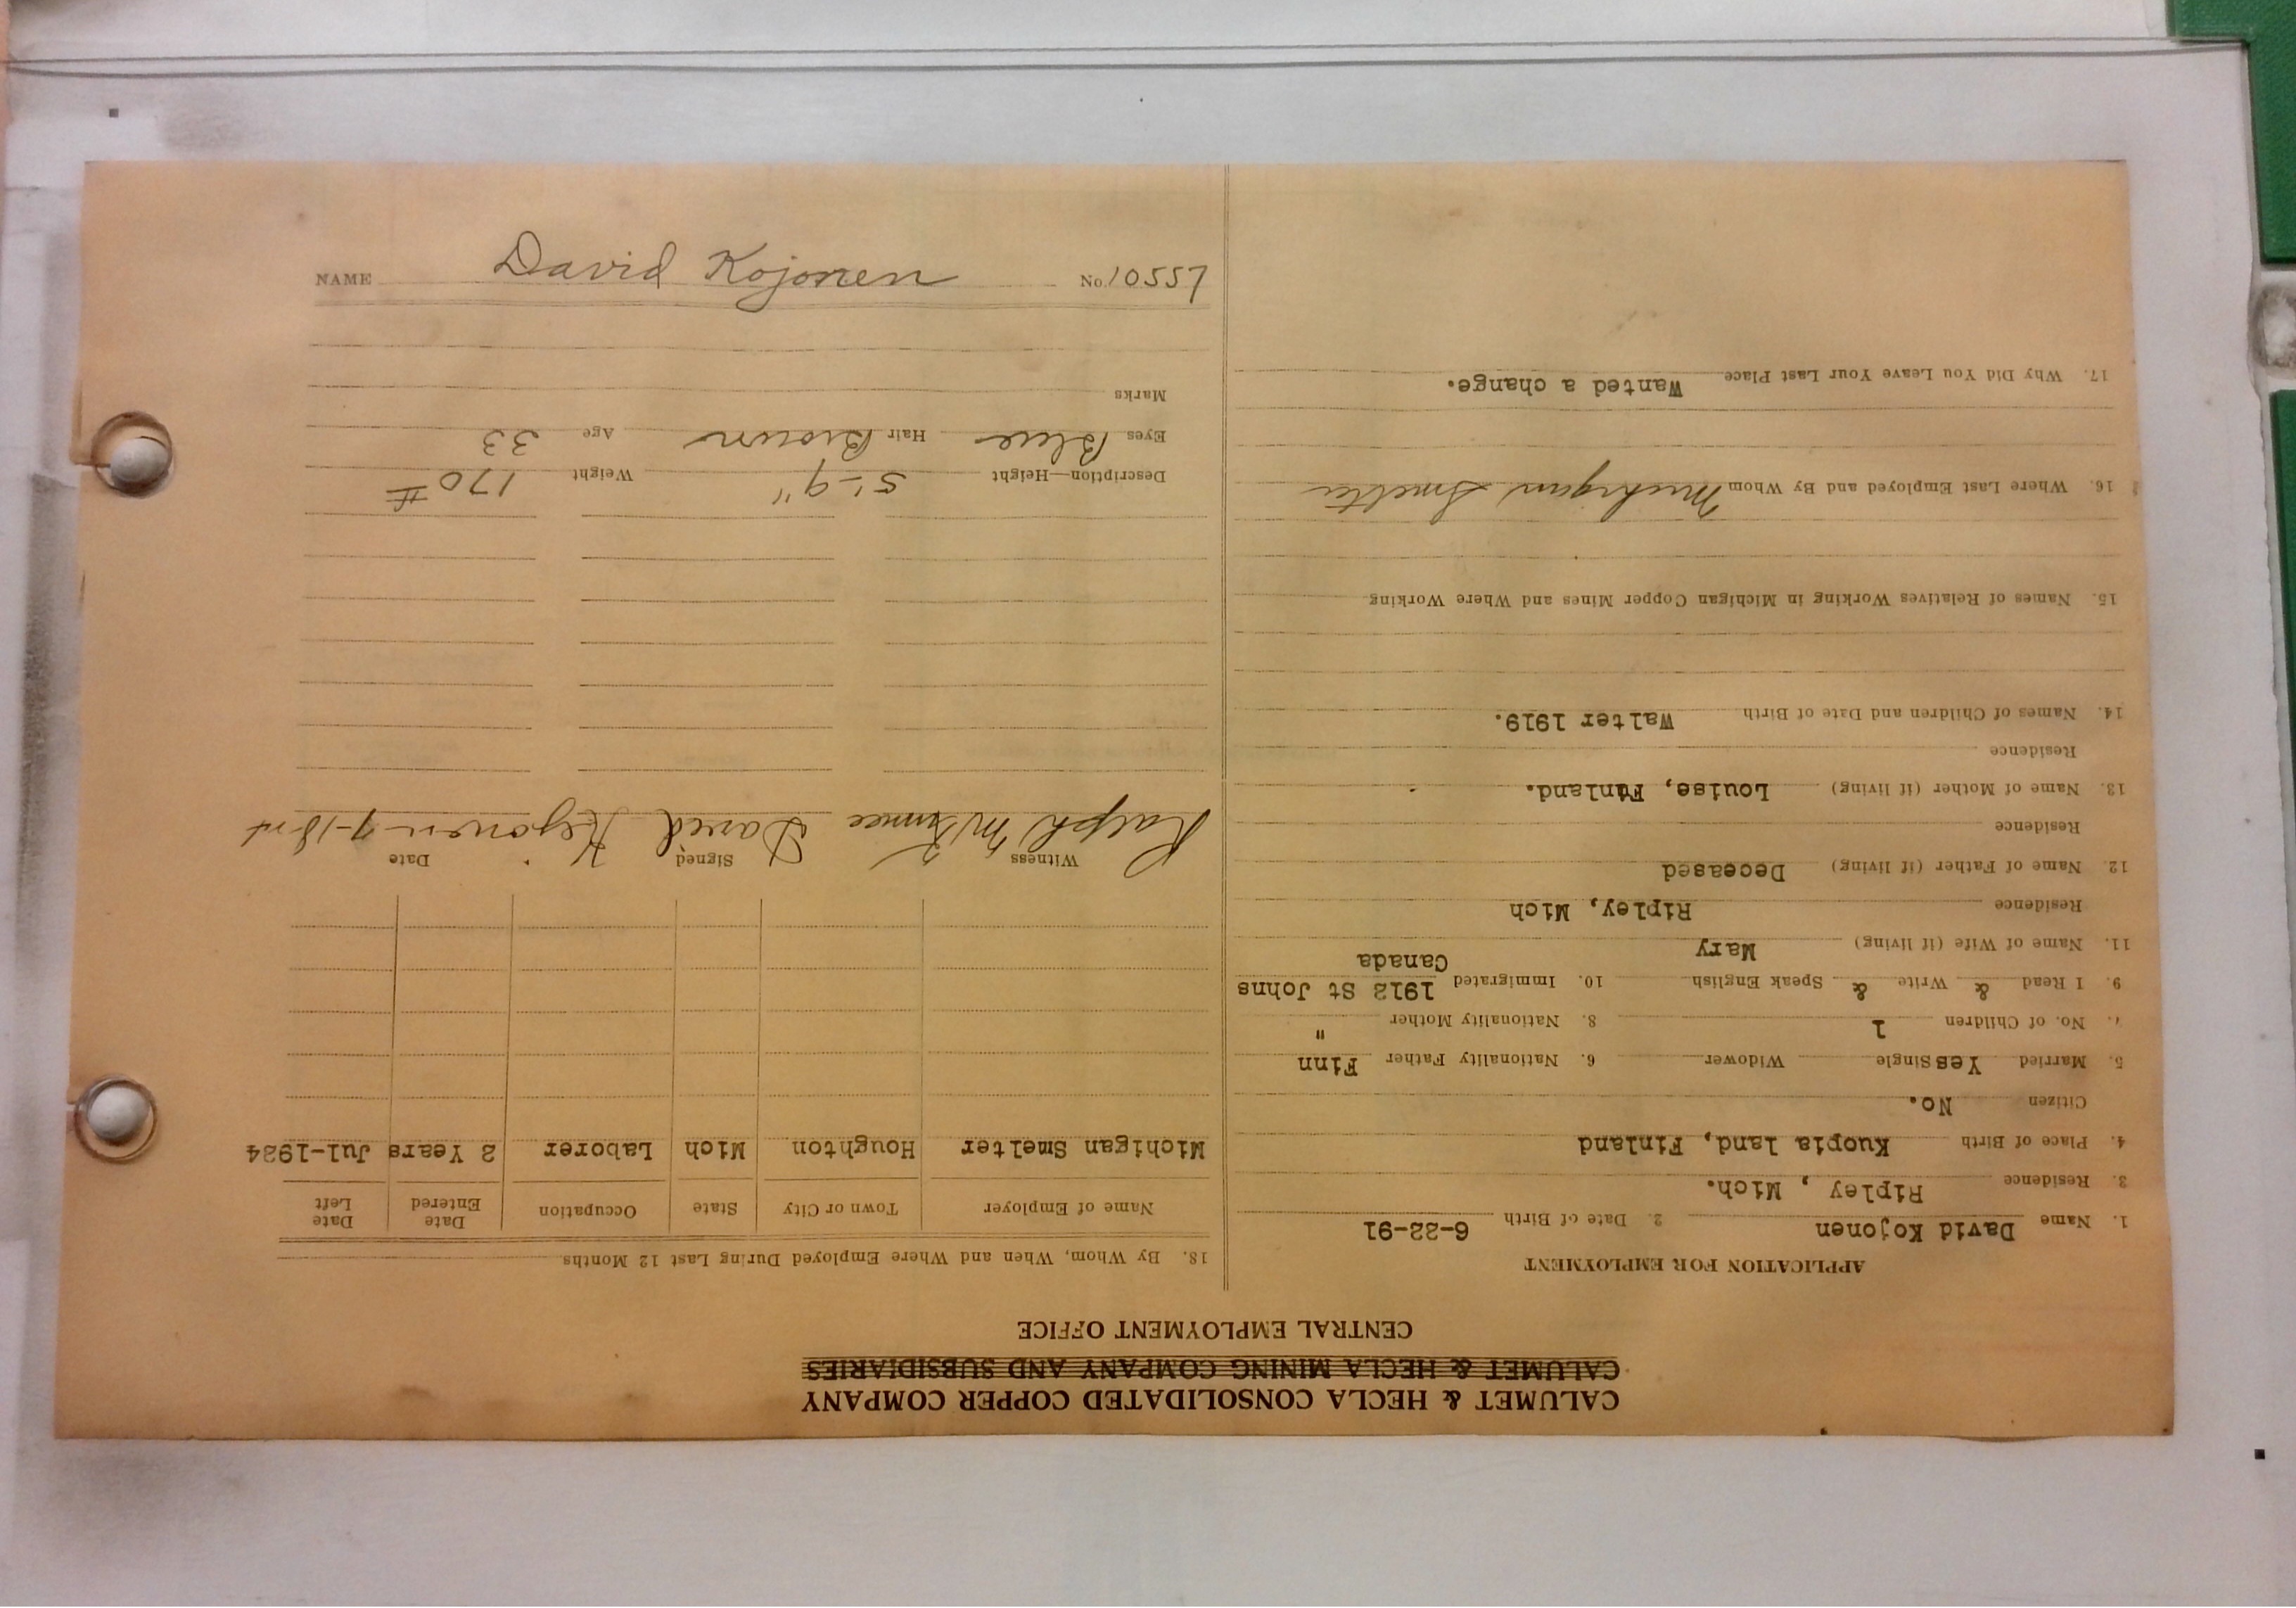 CALUMET & HECLA CONSOLIDATED COPPER COMPANY
CALUMET & HECLA MINING COMPANY AND SUBSIDIARIES
CENTRAL EMPLOYMENT OFFICE
APPLICATION FOR EMPLOYMENT
1. Name David Kojonen 2. Date of Birth 6-22-91
3. Residence Ripley , Mich.
4. Place of Birth Kuopia land, Finland
Citizen No.
5. Married Yes Single Widower 6. Nationality Father Finn
7. No. of Children 1 8. Nationality Mother "
9. I Read & Write & Speak English 10. Immigrated 1912 St Johns
Canada
11. Name of Wife (if living) Mary
Residence Ripley, Mich
12. Name of Father (if living) Deceased
Residence
13. Name of Mother (if living) Louise, Finland.
Residence
14. Names of Children and Date of Birth Walter 1919.
15. Names of Relatives Working in Michigan Copper Mines and Where Working
16. Where Last Employed and By Whom Michigan Smelter
17. Why Did You Leave Your Last Place Wanted a change.
18. By Whom, When and Where Employed During Last 12 Months
Name of Employer Town or City State Occupation Date Entered Date Left
Michigan Smelter Houghton Mich Laborer 2 Years Jul-1924
Witness Signed Date
Ralph David Kojonen
Description—Height 5'-9" Weight 170 #
Eyes Blue Hair Brown Age 33
Marks
NAME David Kojonen No. 10557